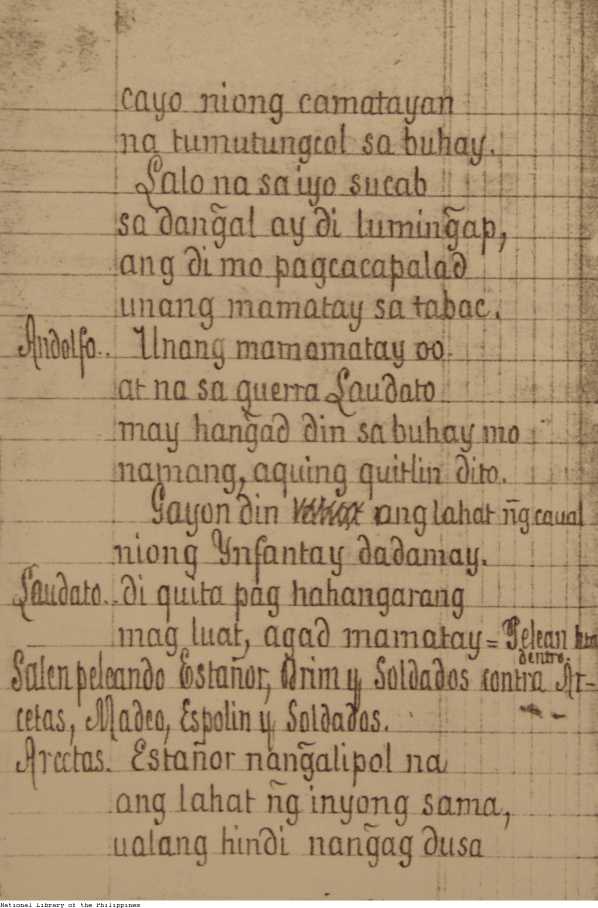 cayo niong camatayan
na tumutungcol sa buhay.
Lalo na sa iyo sucab
sa dang̃al ay di luming̃ap,
ang di mo pagcacapalad
unang mamatay sa tabac.
Andolfo.. Unang mamamatay oo.
at na sa guerra Laudato
may hang̃ad din sa buhay mo
namang, aquing quitlin dito.
Gayon din ang lahat ñg caual
niong Ynfantay dadamay.
Laudato.. di quita pag hahangarang
mag luat, agad mamatay = Pelean
dentro.
Salen peleando Estañor, Brim y Soldados contra Ar-
cetas, Madeo, Espolin y Soldados.
Arcetas. Estañor nang̃alipol na
ang lahat ñg inyong sama,
ualang hindi nang̃ag dusa
National Library of the Philippines